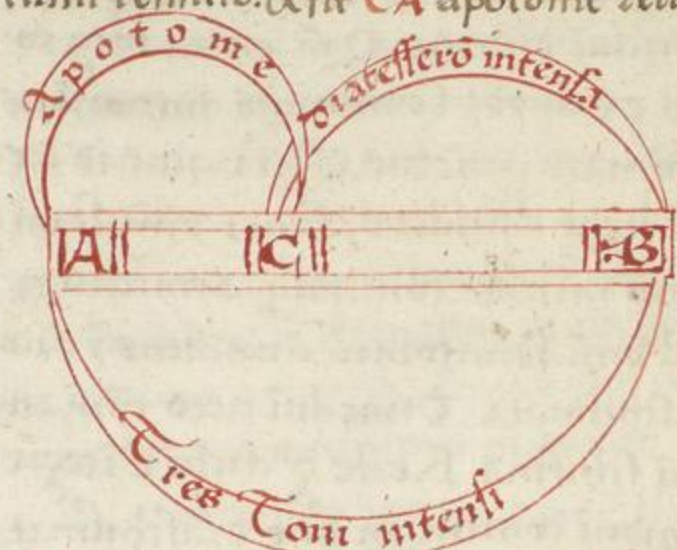 CA apotome
Apotome
diatesserō intensa
A C B
Tres Toni intensi